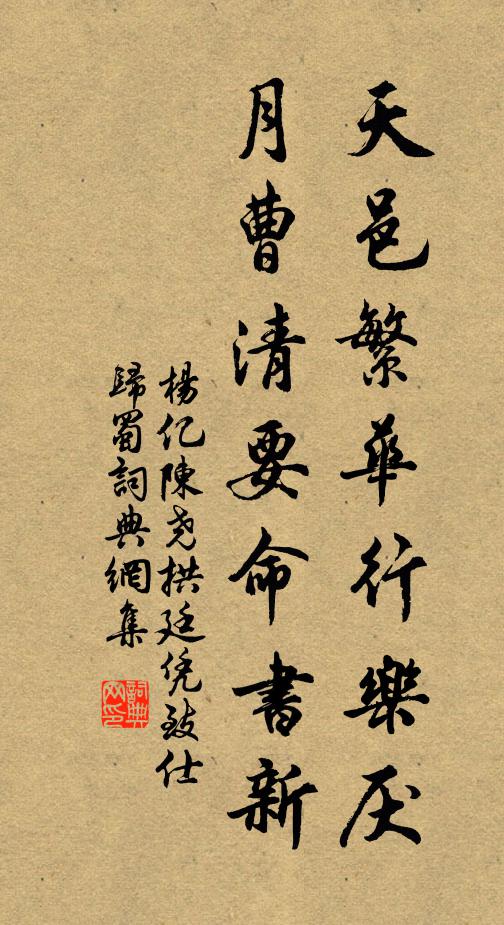 天邑繁華行樂厌
月曹清要命書新
楊亿陳尧拱廷凭致仕
歸蜀詞典網集
詞典网印